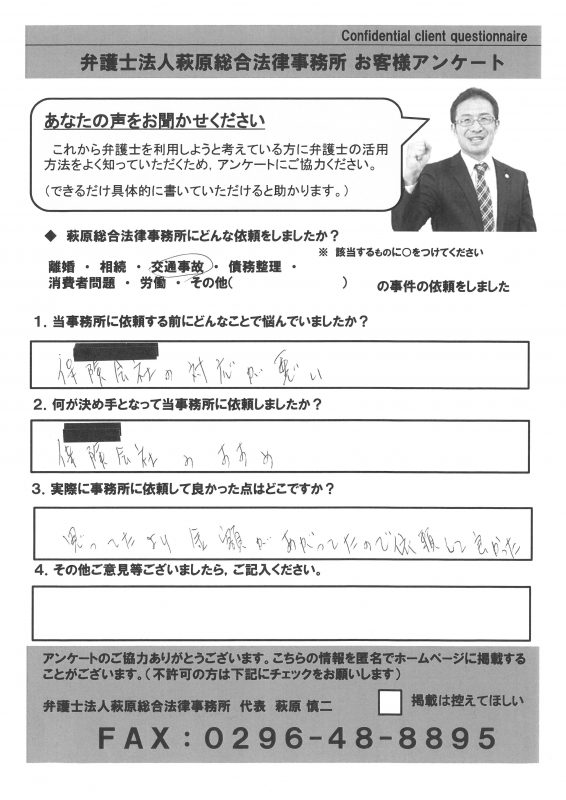 Confidential client questionnaire
弁護士法人萩原総合法律事務所 お客様アンケート
あなたの声をお聞かせください
これから弁護士を利用しようと考えている方に弁護士の活用
方法をよく知っていただくため，アンケートにご協力ください。
（できるだけ具体的に書いていただけると助かります。）
◆ 萩原総合法律事務所にどんな依頼をしましたか？
※ 該当するものに○をつけてください
離婚 ・ 相続 ・ 交通事故 ・ 債務整理 ・
消費者問題 ・ 労働 ・ その他( ) の事件の依頼をしました
１．当事務所に依頼する前にどんなことで悩んでいましたか？
保険会社の対応が悪い
２．何が決め手となって当事務所に依頼しましたか？
保険会社の
３．実際に事務所に依頼して良かった点はどこですか？
思ってたより金額があがってたので依頼して良かった
４．その他ご意見等ございましたら，ご記入ください。
アンケートのご協力ありがとうございます。こちらの情報を匿名でホームページに掲載する
ことがございます。（不許可の方は下記にチェックをお願いします）
弁護士法人萩原総合法律事務所 代表 萩原 慎二
掲載は控えてほしい
ＦＡＸ：０２９６-４８-８８９５